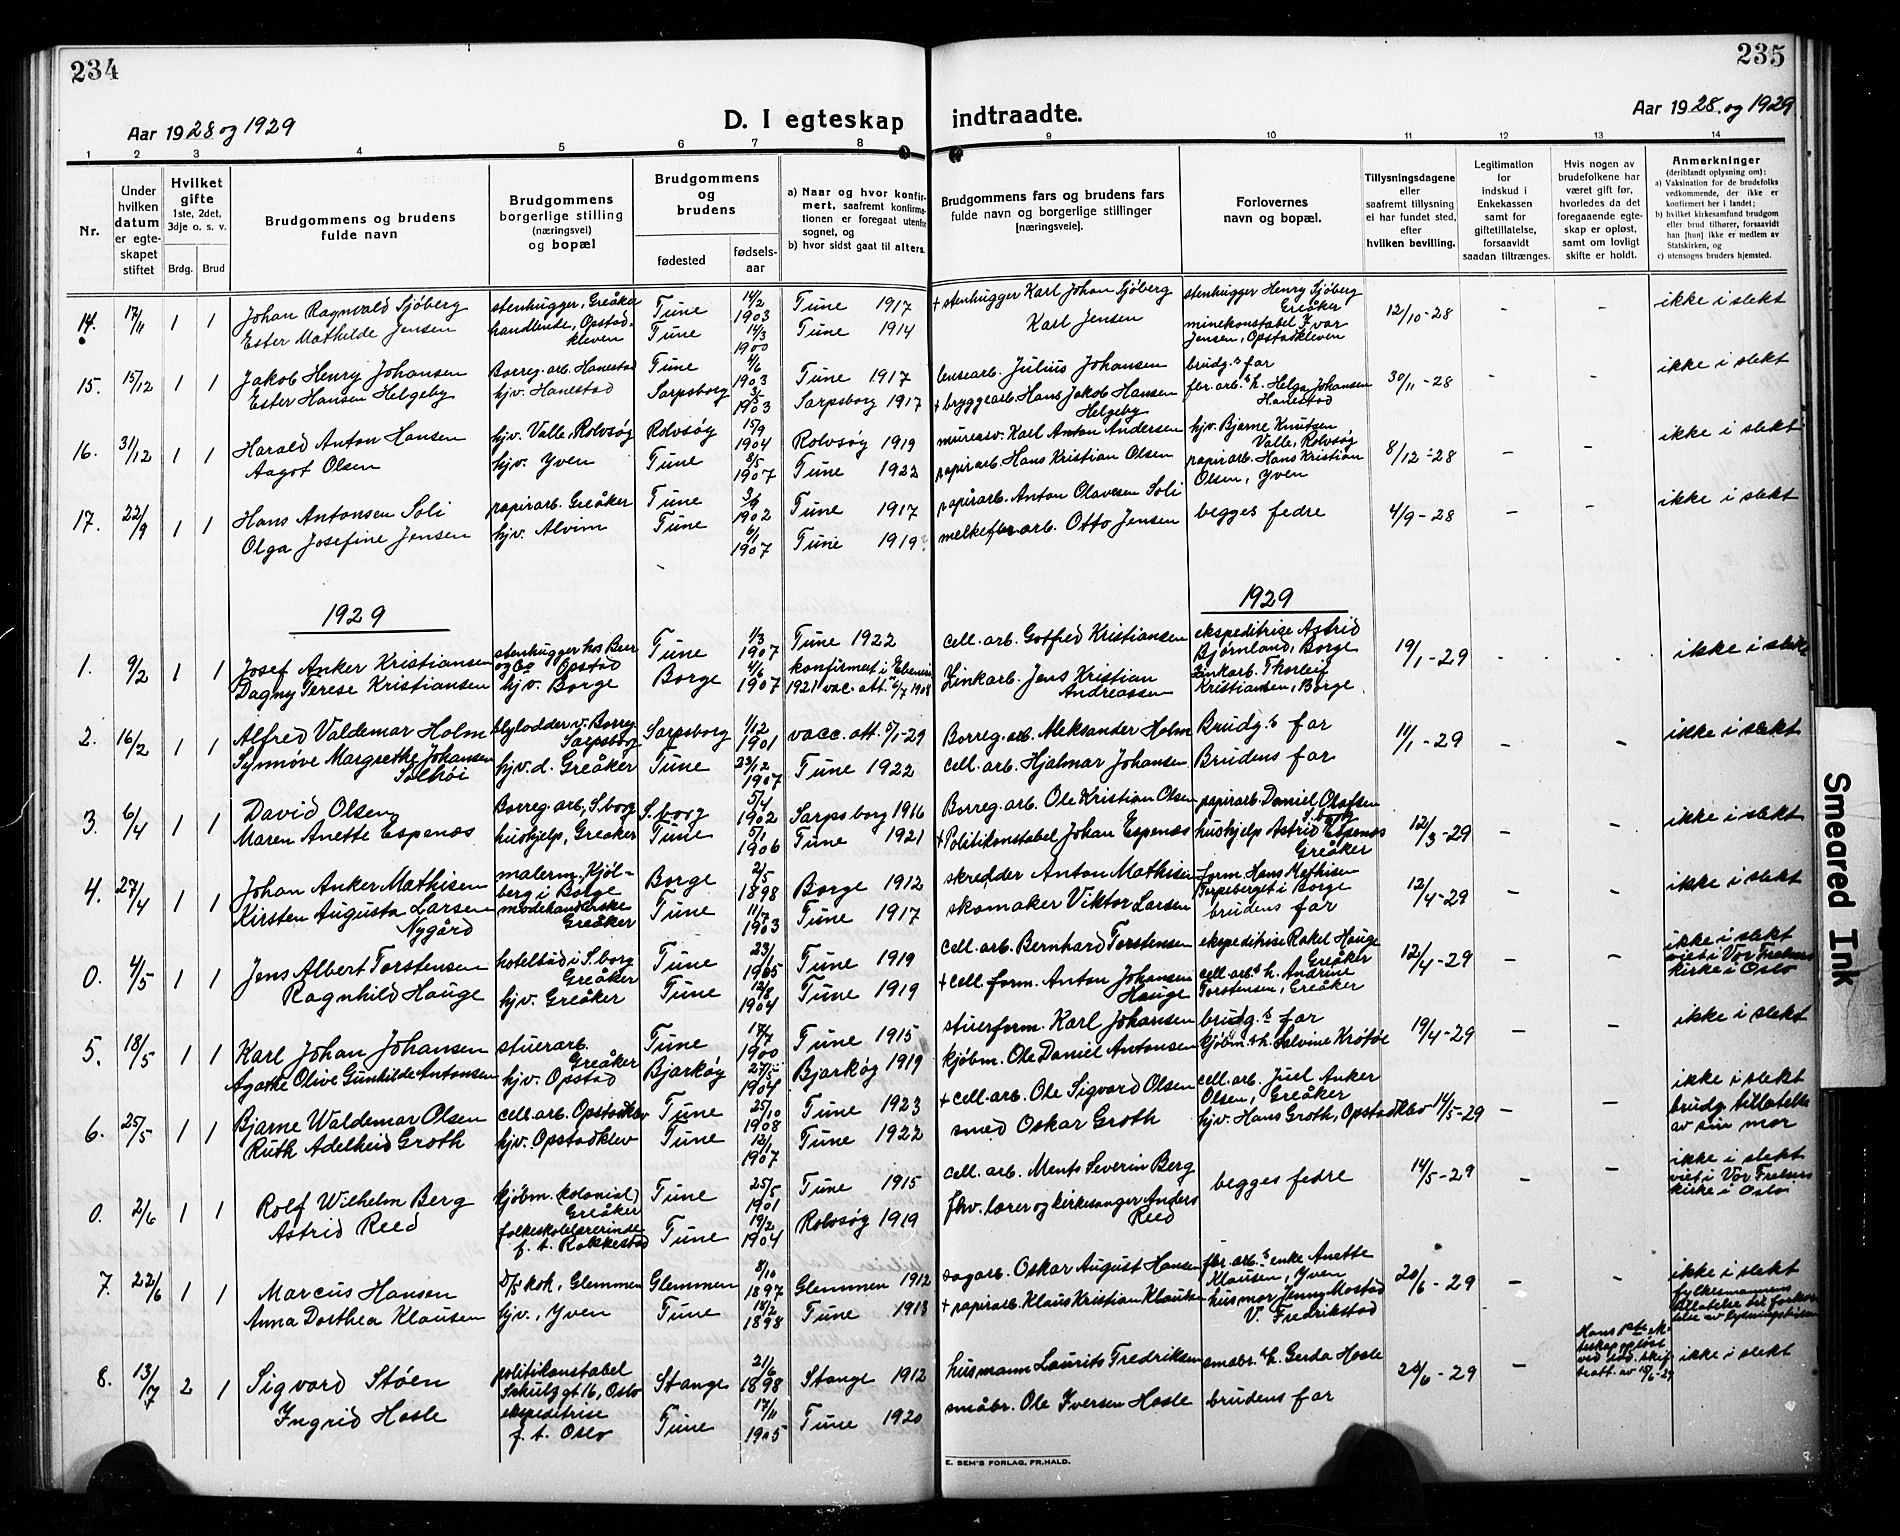 234
235
Aar 1928 og 1929
D. I egteskap indtraadte.
Aar 1928 og 1929
1 2 3 4 5 6 7 8 9 10 11 12 13 14
Nr.
Under hvilken datum er egteskapet stiftet
Hvilket gifte 1ste, 2det, 3dje o. s. v.
Brdg. Brud
Brudgommens og brudens fulde navn
Brudgommens borgerlige stilling (næringsvei) og bopæl
Brudgommens og brudens
fødested
fødselsaar
a) Naar og hvor konfirmert, saafremt konfirmationen er foregaat utenfor sognet, og
b) hvor sidst gaat til alters.
Brudgommens fars og brudens fars fulde navn og borgerlige stillinger [næringsveie].
Forlovernes navn og bopæl.
Tillysningsdagene eller saafremt tillysning ei har fundet sted, efter hvilken bevilling.
Legitimation for indskud i Enkekassen samt for giftetillatelse, forsaavidt saadan tiltrænges.
Hvis nogen av brudefolkene har været gift før, hvorledes da det foregaaende egteskap er opløst, samt om lovlig skifte er holdt.
Anmerkninger (deriblandt oplysning om):
a) Vaksination for de brudefolks vedkommende, der ikke er konfirmert her i landet;
b) hvilket kirkesamfund brudgom eller brud tilhører, forsaavidt han [hun] ikke er medlem av Statskirken, og
c) utensogns bruders hjemsted.
14. 17/11 1 1 Johan Ragnvald Sjöberg stenhugger, Greåker Tune 14/2 1903 Tune 1917 + stenhugger Karl Johan Sjöberg stenhugger Henry Sjöberg Greåker 12/10-28 - - ikke i slekt
Ester Mathilde Jensen handlende, Opstadkleven Tune 14/3 1900 Tune 1914 Karl Jensen minekonstabel Ivar Jensen, Opstadkleven
15. 15/12 1 1 Jakob Henry Johansen Borreg. arb. Hanestad Tune 4/6 1903 Tune 1917 lensearb. Julius Johansen brudg.s far 30/11-28 - - ikke i slekt
Ester Hansen Helgeby hjv. Hanestad Sarpsborg 1903 Sarpsborg 1917 + bryggearb. Hans Jakob Hansen Helgeby fbr. arb.s h. Helga Johansen Hanestad
16. 31/12 1 1 Harald Anton Hansen hjv. Valle, Rolvsöy Rolvsöy 15/9 1904 Rolvsöy 1919 murersv. Karl Anton Andersen hjv. Bjarne Knutsen Valle, Rolvsöy 8/12-28 - - ikke i slekt
Aagot Olsen hjv. Yven Tune 8/5 1907 Tune 1922 papirarb. Hans Kristian Olsen papirarb. Hans Kristian Olsen, Yven
17. 22/9 1 1 Hans Antonsen Soli papirarb. Greåker Tune 1902 Tune 1917 papirarb. Anton Olavesen Soli begges fedre 4/9-28 - - ikke i slekt
Olga Josefine Jensen hjv. Alvim Tune 6/1 1907 Tune 1919? melkefbr. arb. Otto Jensen
1929
1929
1. 9/2 1 1 Josef Anker Kristiansen stenhugger hos Beer og Co Opstad Tune 1/3 1907 Tune 1922 cell. arb. Gotfred Kristiansen ekspeditrise Astrid Björnland, Borge 19/1-29 ikke i slekt
Dagny Terese Kristiansen hjv. Borge Borge 4/6 1907 konfirmert i 1921 vac. att. 6/7 1908 Zinkarb. Jens Kristian Andreassen Zinkarb. Thorleif Kristiansen, Borge
2. 16/2 1 1 Alfred Valdemar Holm blylodder v. Borreg. Sarpsborg Sarpsborg 1/12 1901 vacc. att. 5/1-29 Borreg. arb. Aleksander Holm Brudg.s far 11/1-29 - - ikke i slekt
Synnöve Margrethe Johansen Solhöi hjv. d. Greåker Tune 23/12 1907 Tune 1922 cell. arb. Hjalmar Johansen Brudens far
3. 6/4 1 1 David Olsen Borreg. arb. S.borg S.borg 5/4 1902 Sarpsborg 1916 Borreg. arb. Ole Kristian Olsen papirarb. Daniel Olafsen S.borg 12/3-29 - - ikke i slekt
Maren Anette Espenæs hushjelp, Greåker Tune 5/1 1906 Tune 1921 + Politikonstabel Johan Espenæs hushjelp Astrid Espenæs Greåker
4. 27/4 1 1 Johan Anker Mathisen malerm. Kjölberg i Borge Borge 2/5 1898 Borge 1912 skredder Anton Mathisen form. Hans Mathisen Torpeberget i Borge 12/4-29 - - ikke i slekt
Kirsten Augusta Larsen Nygård modehandlerske Greåker Tune 11/7 1903 Tune 1917 skomaker Viktor Larsen brudens far
0. 4/5 1 1 Jens Albert Torstensen hotelbud i S.borg Greåker Tune 23/1 1905 Tune 1919 cell. arb. Bernhard Torstensen ekspeditrise Rakel Hauge Greåker 12/4-29 - - ikke i slekt viet i Vor Frelsers kirke i Oslo
Ragnhild Hauge hjv. Greåker Tune 12/8 1904 Tune 1919 + cell. form. Anton Johansen Hauge cell. arb.s h. Andrine Torstensen, Greåker
5. 18/5 1 1 Karl Johan Johansen stuerarb. Greåker Tune 17/7 1900 Tune 1915 stuerform. Karl Johansen brudg.s far 19/4-29 - - ikke i slekt
Agathe Olive Gunhilde Antonsen hjv. Opstad Bjarköy 27/5 1904 Bjarköy 1919 kjöbm. Ole Daniel Antonsen kjöbm.s h. Salvine Krötöe
6. 25/5 1 1 Bjarne Waldemar Olsen cell. arb. Opstadklev Tune 25/10 1908 Tune 1923 + cell. arb. Ole Sigvard Olsen cell. arb. Juel Anker Olsen, Greåker 14/5-29 - - ikke i slekt brudg. tillatelse av sin mor
Ruth Adelheid Groth hjv. Opstadklev Tune 12/1 1907 Tune 1922 smed Oskar Groth hjv. Hans Groth, Opstadklev
0. 2/6 1 1 Rolf Wilhelm Berg kjöbm. kolonial, Greåker Tune 25/5 1901 Tune 1915 cell. arb. Ments Severin Berg begges fedre 14/5-29 - - ikke i slekt viet i Vor Frelsers kirke i Oslo
Astrid Reed folkeskolelærerinde f. t. Rakkestad Tune 19/2 1904 Rolvsöy 1919 fhv. lærer og kirkesanger Anders Reed
7. 22/6 1 1 Marcus Hansen D/S kok, Glemmen Glemmen 8/10 1897 Glemmen 1912 sagarb. Oskar August Hansen fbr. arb.s enke Anette Klausen, Yven 20/6-29 - - ikke i slekt fylkesmannens tillatelse til av lysningstiden
Anna Dorthea Klausen hjv., Yven Tune 18/2 1898 Tune 1913 + papirarb. Klaus Kristian Klausen husmor Jenny Mostad V. Fredrikstad
8. 13/7 2 1 Sigvard Stöen politikonstabel Schulz gt 16, Oslo Stange 21/6 1898 Stange 1912 husmann Laurits Fredriksen smabr.s h. Gerda Hasle 20/6-29 - Hans 1ste ekteskap oplöst ved död. Skifteatt. av 17/6-29 ikke i slekt
Ingrid Hasle ekspeditrise f. t. Oslo Tune 17/11 1905 Tune 1920 småbr. Ole Iversen Hasle brudens far
E. SEM'S FORLAG, FR.HALD.
Smeared Ink